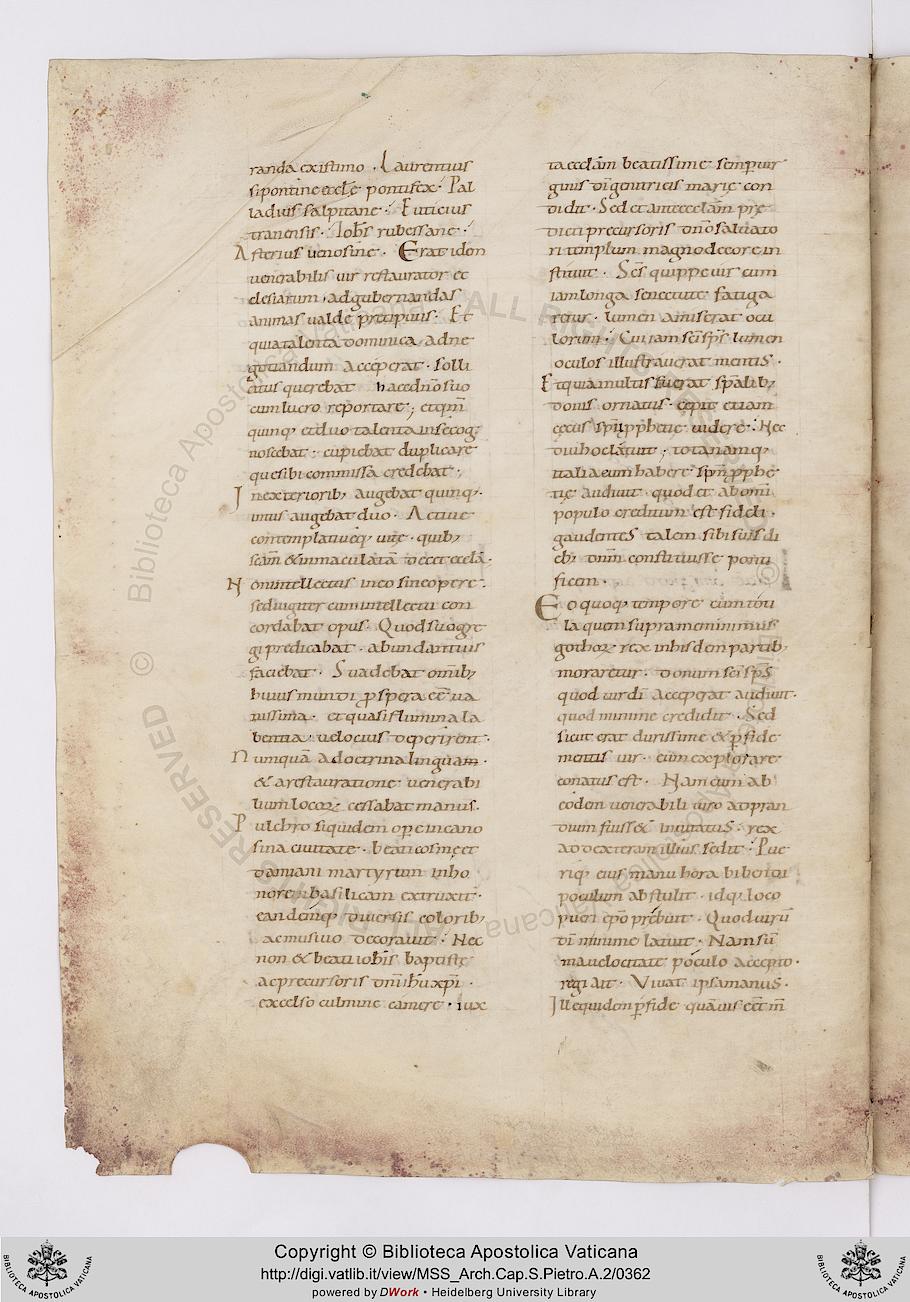 randa existimo · Laurentius
sipontine eccłe pontifex · Pal
ladius salpitane · Euticius
tranensis · Ioħs rubessane ·
Asterius uenosine · Erat idem
uenerabilis uir restaurator ec
clesiarum · ad gubernandas
animas ualde precipuus · Et
quia talenta dominica ad ne
gotiandum acceperat · solli
citus querebat hac edño suo
cum lucro reportare ; et qm̃
quinq; et duo talenta in se cog
noscebat · cupiebat duplicare
que sibi commissa credebat ·
In exteriorib; augebat quinq; ·
intus augebat duo · Actiue
contemplatiueq; uite · quib;
scam̃ & inmaculatã docet ecclã ·
Non intellectus in eo sine opere ·
sed iugiter cum intellectu con
cordabat opus · Quod suo gre
gi predicabat · abundantius
faciebat · Suadebat omib;
huius mundi prospera eẽ ua
nissima · et quasi flumina la
bentia uelocius deperirent ·
Nunquã a doctrina linguam ·
& a restauratione uenerabi
lium locor̃ cessabat manus ·
Pulchro siquidem opere in cano
sina ciuitate · beati cosme et
damiani martyrum in ho
nore basilicam extruxit ·
eandemq; diuersis colorib;
ac musiuo decorauit · Nec
non & beati ioħis baptistę
ac precursoris dñi ihu xpi ·
excelso culmine camere · iux
ta ecclãm beatissime semper uir
ginis di genitricis marię con
didit · Sed et ante ecclãm prę
dicti precursoris dño saluato
ri templum magno decore in
stituit · Scs quippe uir cum
iam longa senectute fatiga
retur · lumen amiserat ocu
lorum · Cui iam sci sps lumen
oculos illustrauerat mentis ·
Et quia multis fuerat spalib;
donis ornatus · cepit etiam
cecus spu pphetie uidere · Nec
diu hoc latuit ; tota namq;
italia eum habere spm pphe
tię audiuit · quod et ab omi
populo creditum est fideli ·
gaudentes talem sibi suis di
eb; dnm constituisse ponti
ficem ·
Eo quoq; tempore cum toti
la quem supra meminimus
gothor̃ rex in hisdem partib;
moraretur · donum sci sps
quod uir di acceperat audiuit ·
quod minime credidit · Sed
sicut erat durissime & pfide
mentis uir · eum explorare
conatus est · Nam cum ab
eodem uenerabili uiro ad pran
dium fuiss& inuitatus · rex
ad dexteram illius sedit · Pue
riq; eius manu hora bibendi
poculum abstulit · idq; loco
pueri epo prebuit · Quod uirũ
di minime latuit · Nam sũ
ma uelocitate poculo accepto ·
regi ait · Viuat ipsa manus ·
Ille quidem pfide quãuis eet m̃
Copyright © Biblioteca Apostolica Vaticana
http://digi.vatlib.it/view/MSS_Arch.Cap.S.Pietro.A.2/0362
powered by DWork • Heidelberg University Library